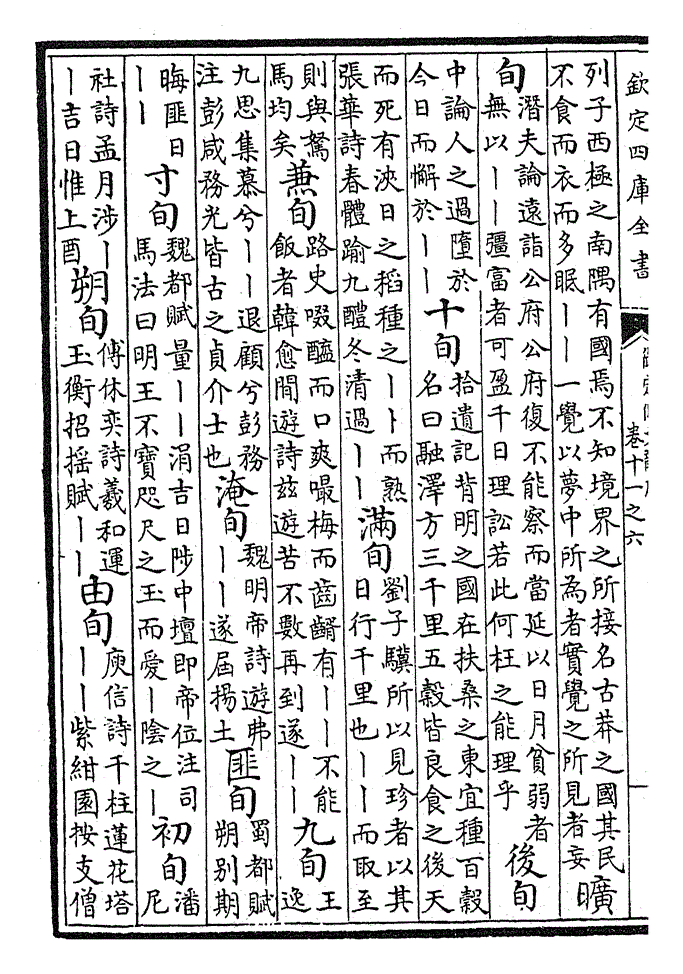 欽定四庫全書
卷十一之六
列子西極之南隅有國焉不知境界之所接名古莽之國其民
不食而衣而多眠丨丨一覺以夢中所為者實覺之所見者妄
曠
旬
潛夫論遠詣公府公府復不能察而當延以日月貧弱者
無以丨丨彊富者可盈千日理訟若此何枉之能理乎
後旬
中論人之過墮於
今日而懈於丨丨
十旬
拾遺記背明之國在扶桑之東宜種百穀
名曰融澤方三千里五穀皆良食之後天
而死有浹日之稻種之丨丨而熟
張華詩春體踰九醴冬清過丨丨
滿旬
劉子驥所以見珍者以其
日行千里也丨丨而取至
則與駑
馬均矣
兼旬
路史啜醯而口爽嘬梅而齒齼有丨丨不能
飯者韓愈閒遊詩茲遊苦不數再到遂丨丨
九旬
王
逸
九思集慕兮丨丨退顧兮彭務
注彭咸務光皆古之貞介士也
淹旬
魏明帝詩遊弗
丨丨遂屆揚土
匪旬
蜀都賦
朔別期
晦匪日
丨丨
寸旬
魏都賦量丨丨涓吉日陟中壇即帝位注司
馬法曰明王不寶咫尺之玉而愛丨陰之丨
初旬
潘
尼
社詩孟月涉丨
丨吉日惟上酉
朔旬
傅休奕詩羲和運
玉衡招搖賦丨丨
由旬
庾信詩千柱蓮花塔
丨丨紫紺園按支僧